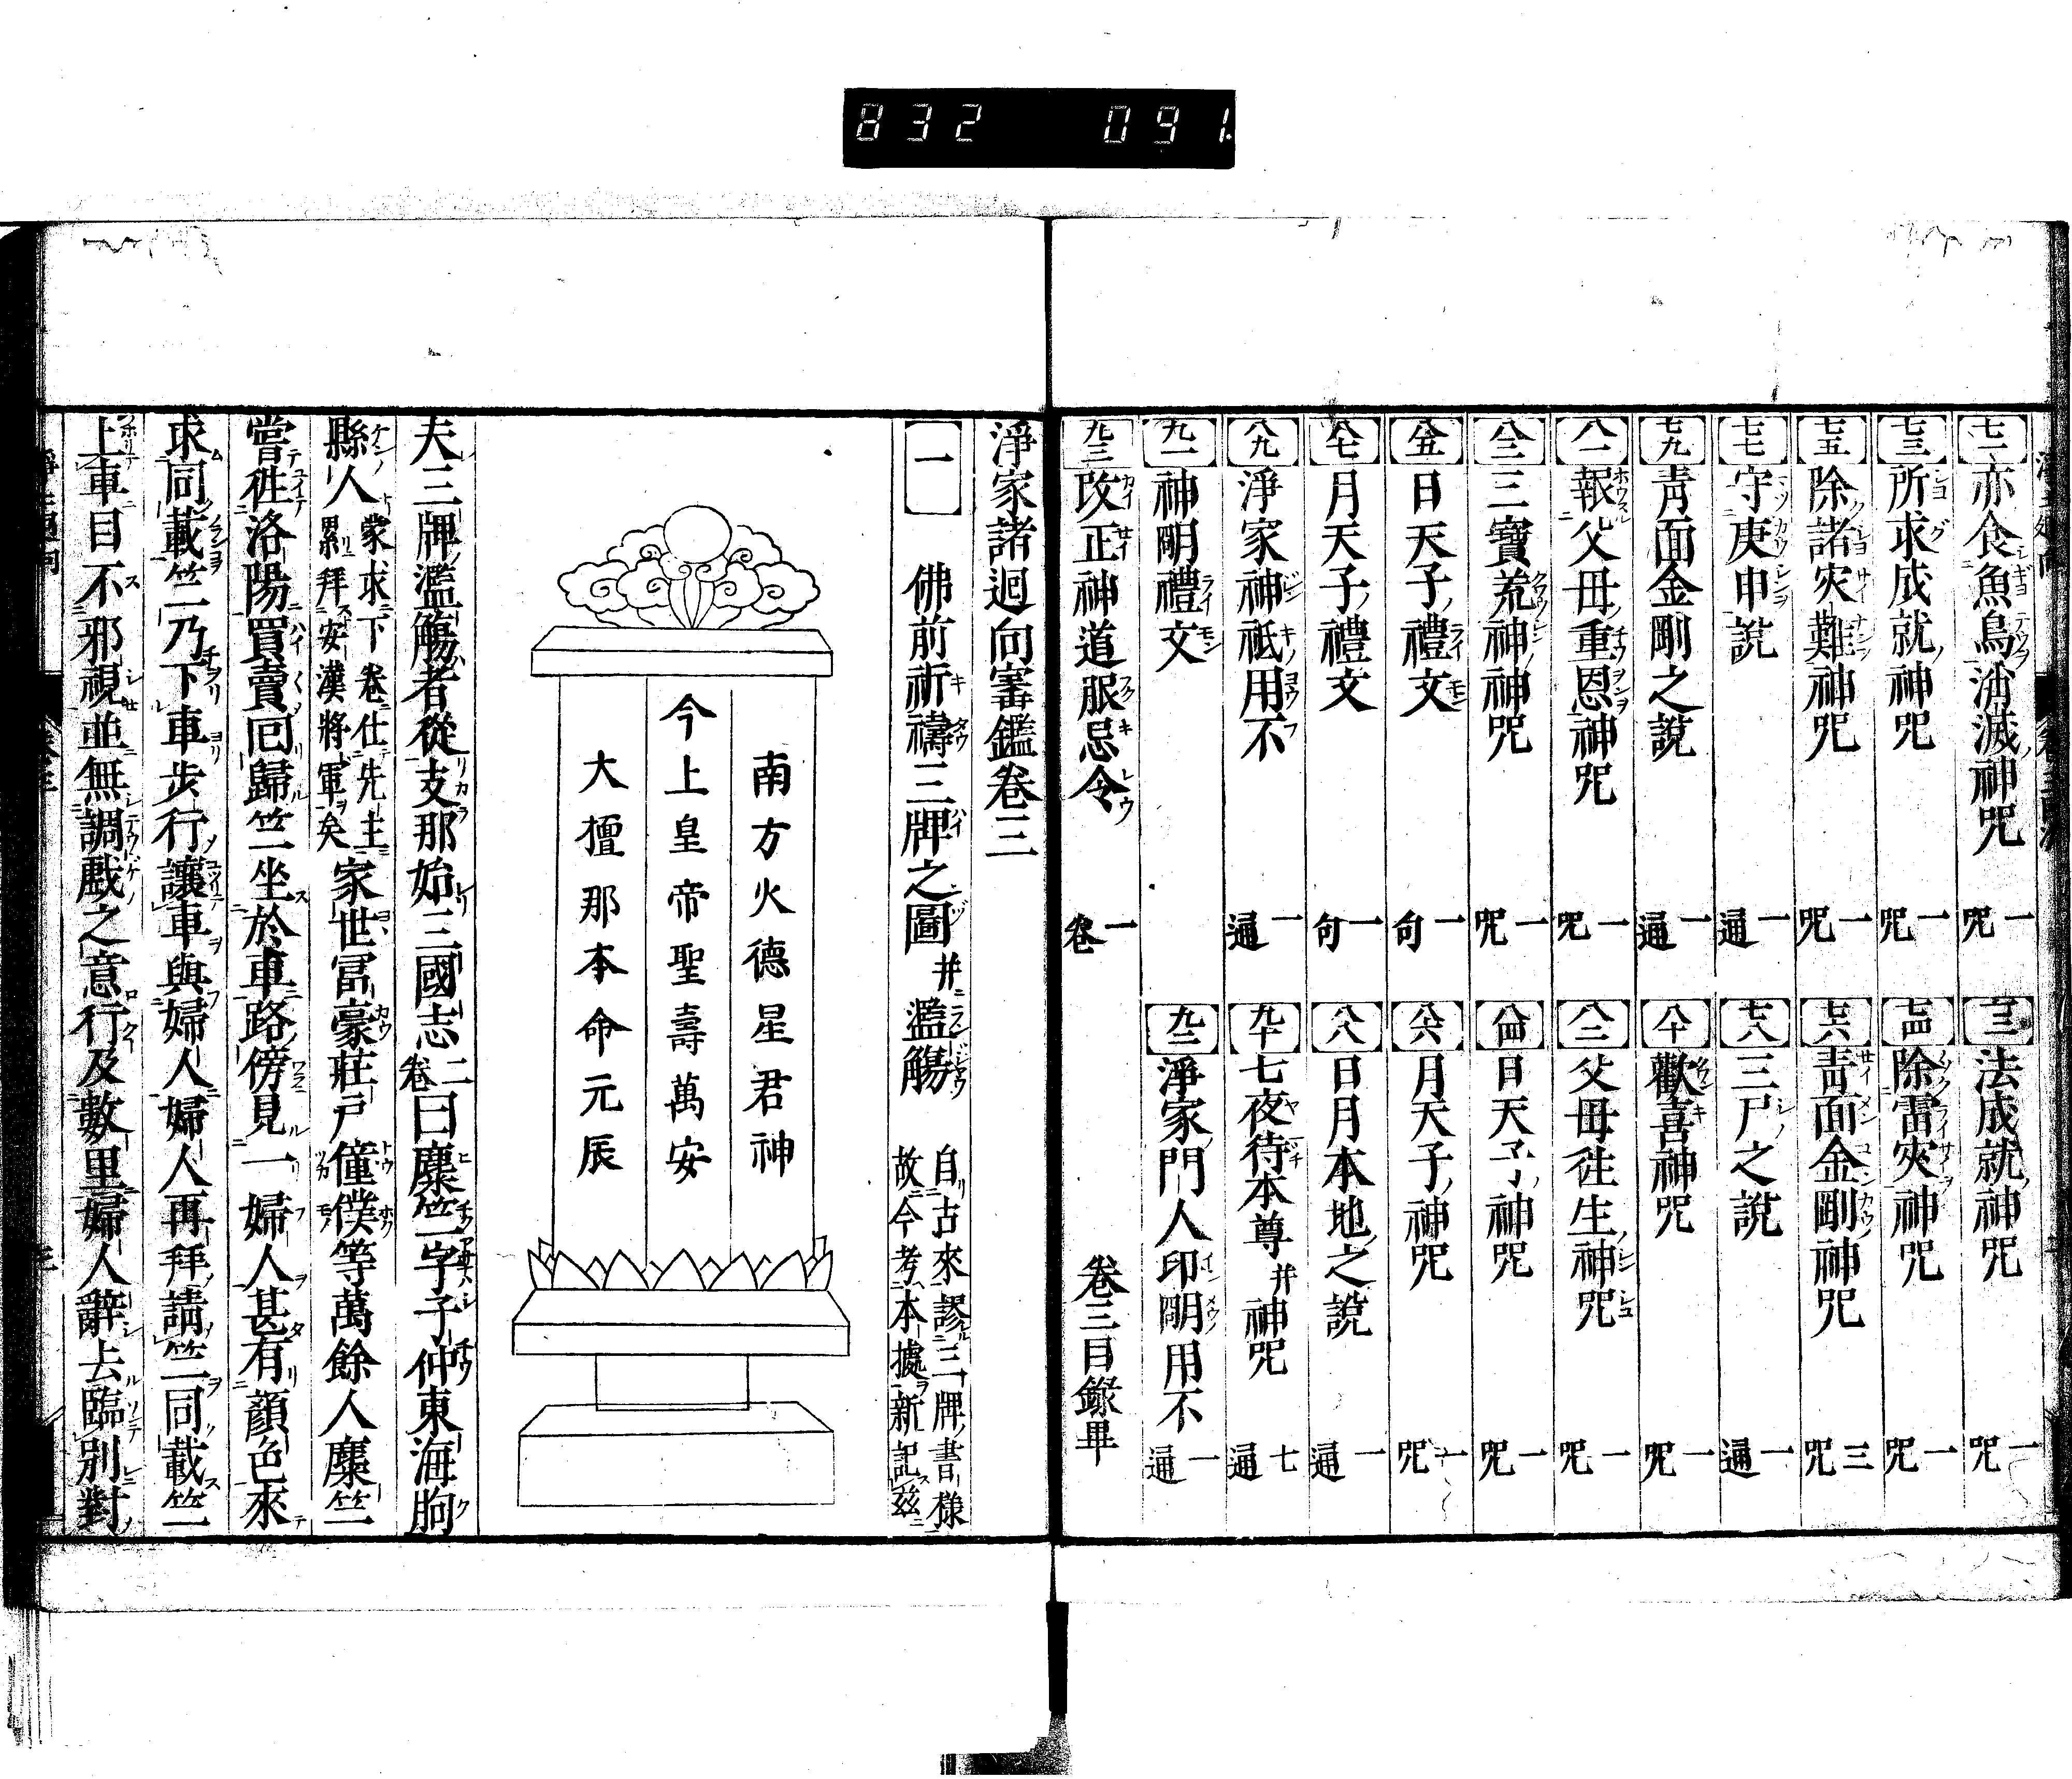 832 091
七一 亦食魚鳥消滅神咒 一咒
七二 法成就神咒 一咒
七三 所求成就神咒 一咒
七四 除雷災神咒 一咒
七五 除諸災難神咒 一咒
七六 青面金剛神咒 三咒
七七 守庚申說 一通
七八 三尸之說 一通
七九 青面金剛之說 一通
八十 歡喜神咒 一咒
八一 報父母重恩神咒 一咒
八二 父母徃生神咒 一咒
八三 三寶荒神神咒 一咒
八四 日天子神咒 一咒
八五 日天子禮文 一句
八六 月天子神咒 一咒
八七 月天子禮文 一句
八八 日月本地之說 一通
八九 淨家神祇用不 一通
九十 七夜待本尊并神咒 七通
九一 神明禮文
九二 淨家門人印明用不 一通
九三 改正神道服忌令 一卷
卷三目錄畢
淨家諸迴向寶鑑卷三
一 佛前祈禱三牌之圖并濫觴 自古來謬三牌書樣故今考本據新記茲
南方火德星君神
今上皇帝聖壽萬安
大檀那本命元辰
夫三牌濫觴者從支那始三國志卷二曰麋竺字子仲東海朐
縣人蒙求下卷仕先主累拜安漢將軍矣家世冨豪莊戸僮僕等萬餘人麋竺
嘗徃洛陽買賣囘歸竺坐於車路傍見一婦人甚有顏色來
求同載竺乃下車步行讓車與婦人婦人再拜請竺同載竺
上車目不邪視並無調戲之意行及數里婦人辭去臨別對